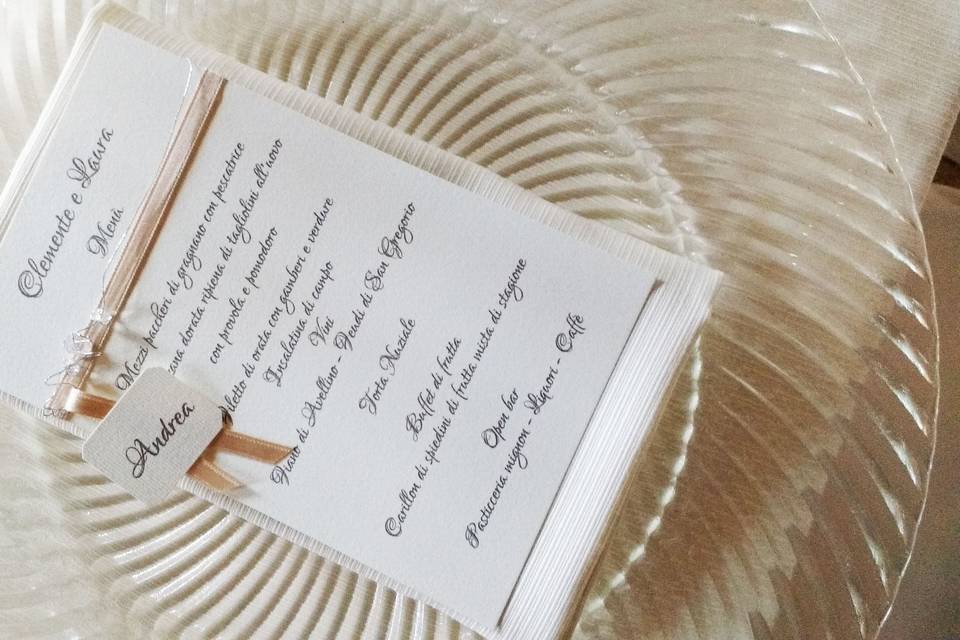 Clemente e Laura
Menù
Mezzi paccheri di gragnano con pescatrice
dorata ripiena di tagliolini all'uovo
con provola e pomodoro
di orata con gamberi e verdure
Insalatina di campo
Vini
Fiano di Avellino - Feudi di San Gregorio
Torta Nuziale
Buffet di frutta
Carillon di spiedini di frutta mista di stagione
Open bar
Pasticceria mignon - Liquori - Caffè
Andrea